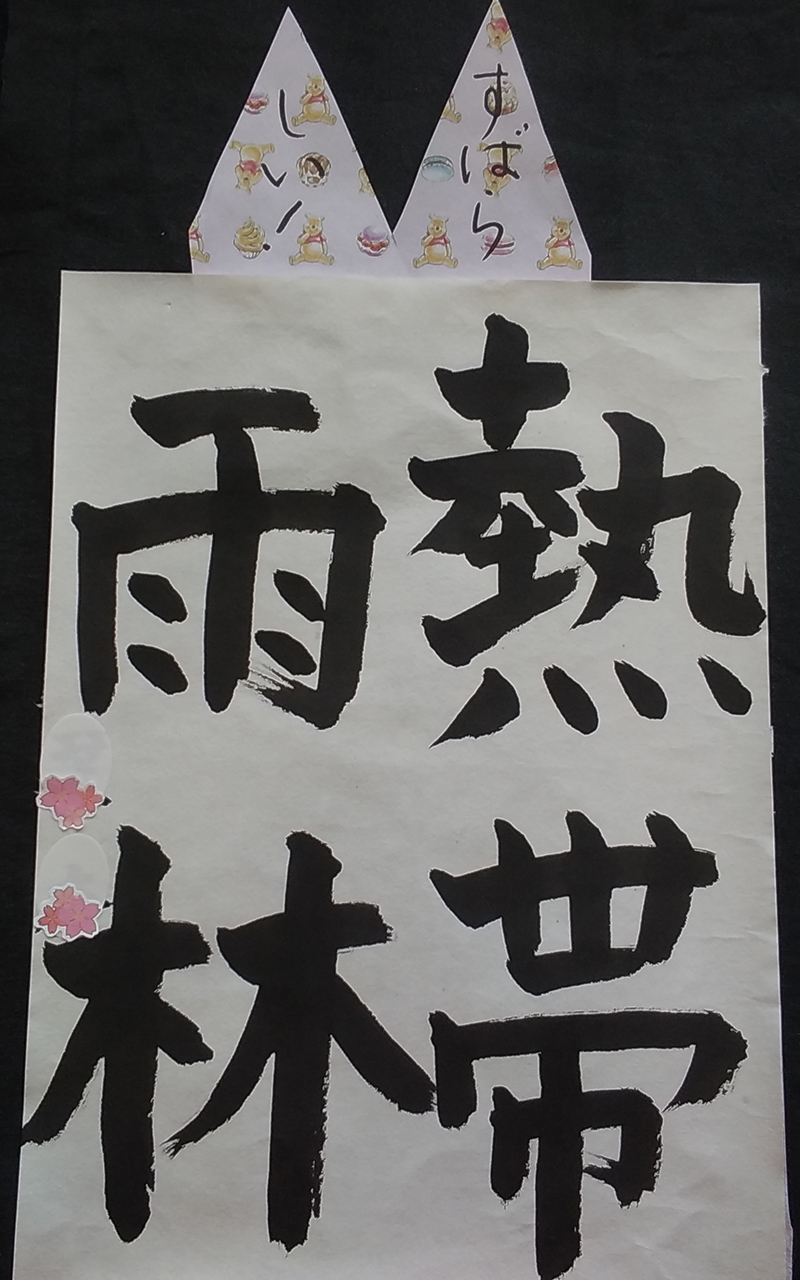 すばら
しい!
熱帯
雨林